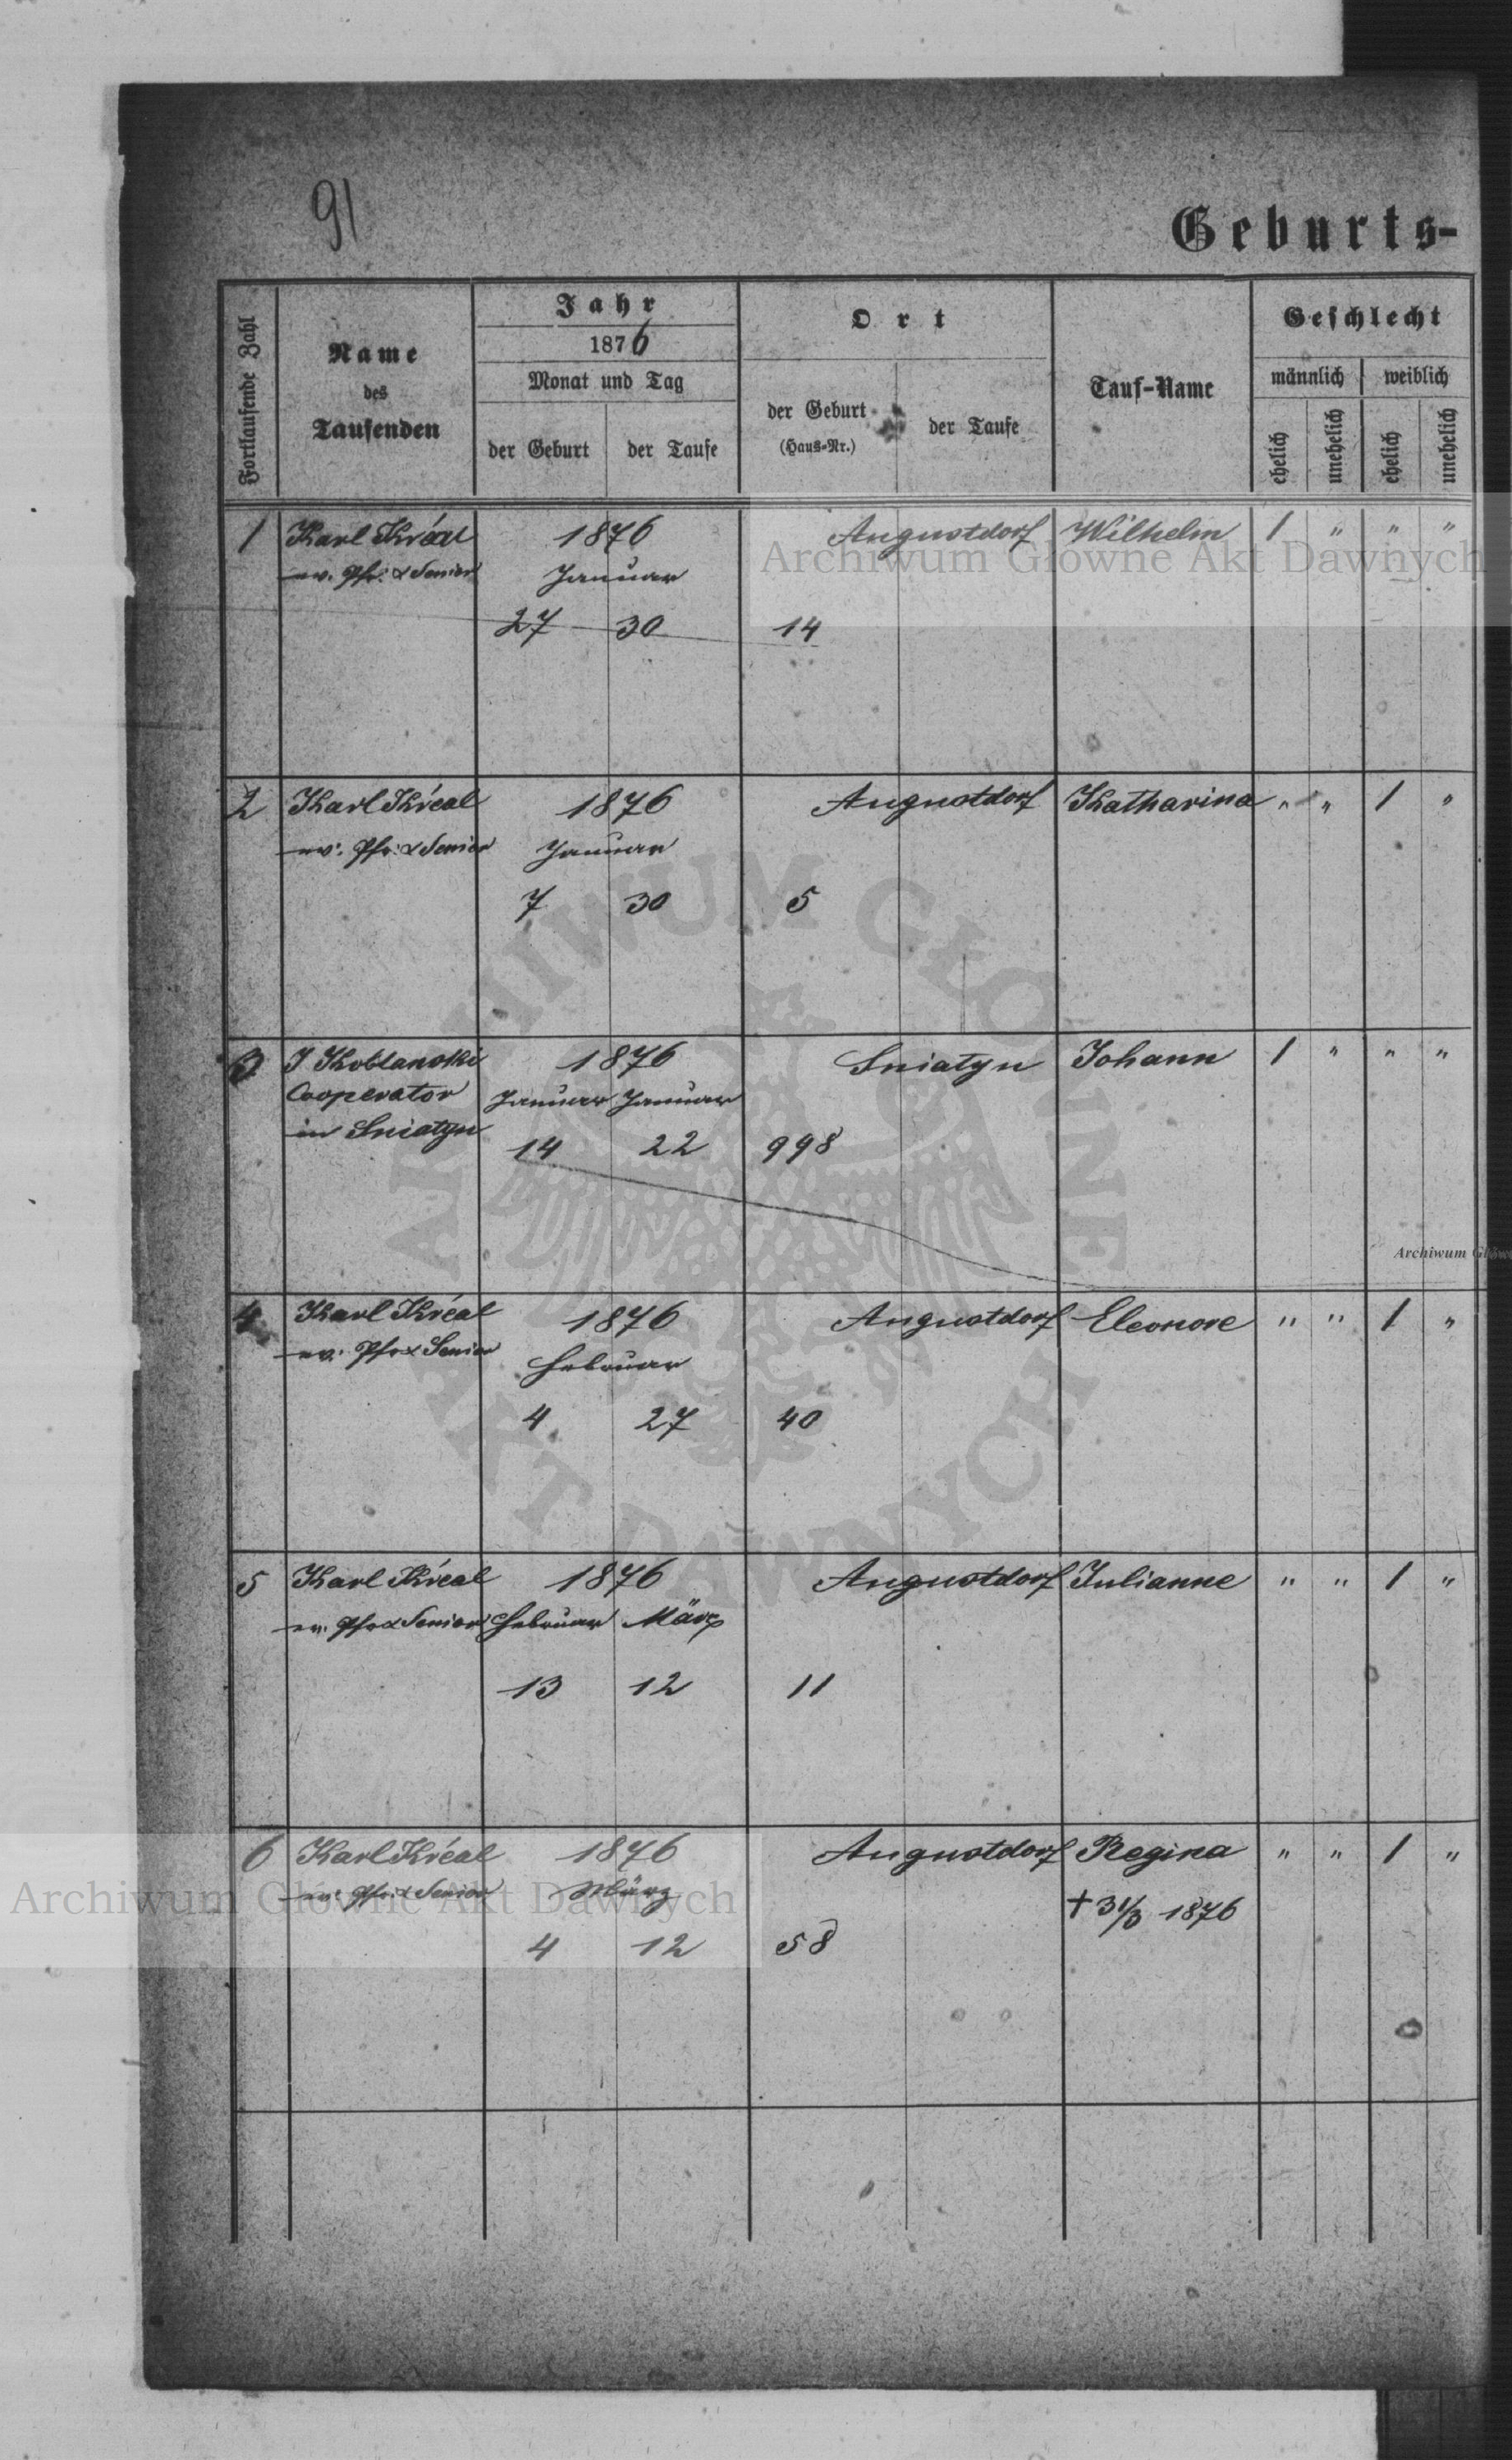 91
Geburts-
Fortlaufende Zahl
Name
des
Taufenden
Jahr
1876
Monat und Tag
der Geburt
der Taufe
Ort
der Geburt
(Haus-Nr.)
der Taufe
Tauf-Name
Geschlecht
männlich
weiblich
ehelich
unehelich
ehelich
unehelich
1 Karl Króal 1876 Augustdorf Wilhelm 1 " " "
ev. Pfr: & Senior Januar
27 30 14
2 Karl Króal 1876 Augustdorf Katharina " " 1 "
ev. Pfr: & Senior Januar
7 30 5
3 J Koblanski 1876 Sniatyn Johann 1 " " "
Cooperator Januar Januar
in Sniatyn 14 22 998
4 Karl Króal 1876 Augustdorf Eleonore " " 1 "
ev. Pfr & Senior Februar
4 27 40
5 Karl Króal 1876 Augustdorf Julianne " " 1 "
ev. Pfr & Senior Februar März
13 12 11
6 Karl Króal 1876 Augustdorf Regina " " 1 "
ev. Pfr: & Senior März
† 31/3 1876
4 12 58
Archiwum Główne Akt Dawnych
ARCHIWUM GŁÓWNE AKT DAWNYCH W
Archiwum Główne Akt Dawnych
Archiwum Główn